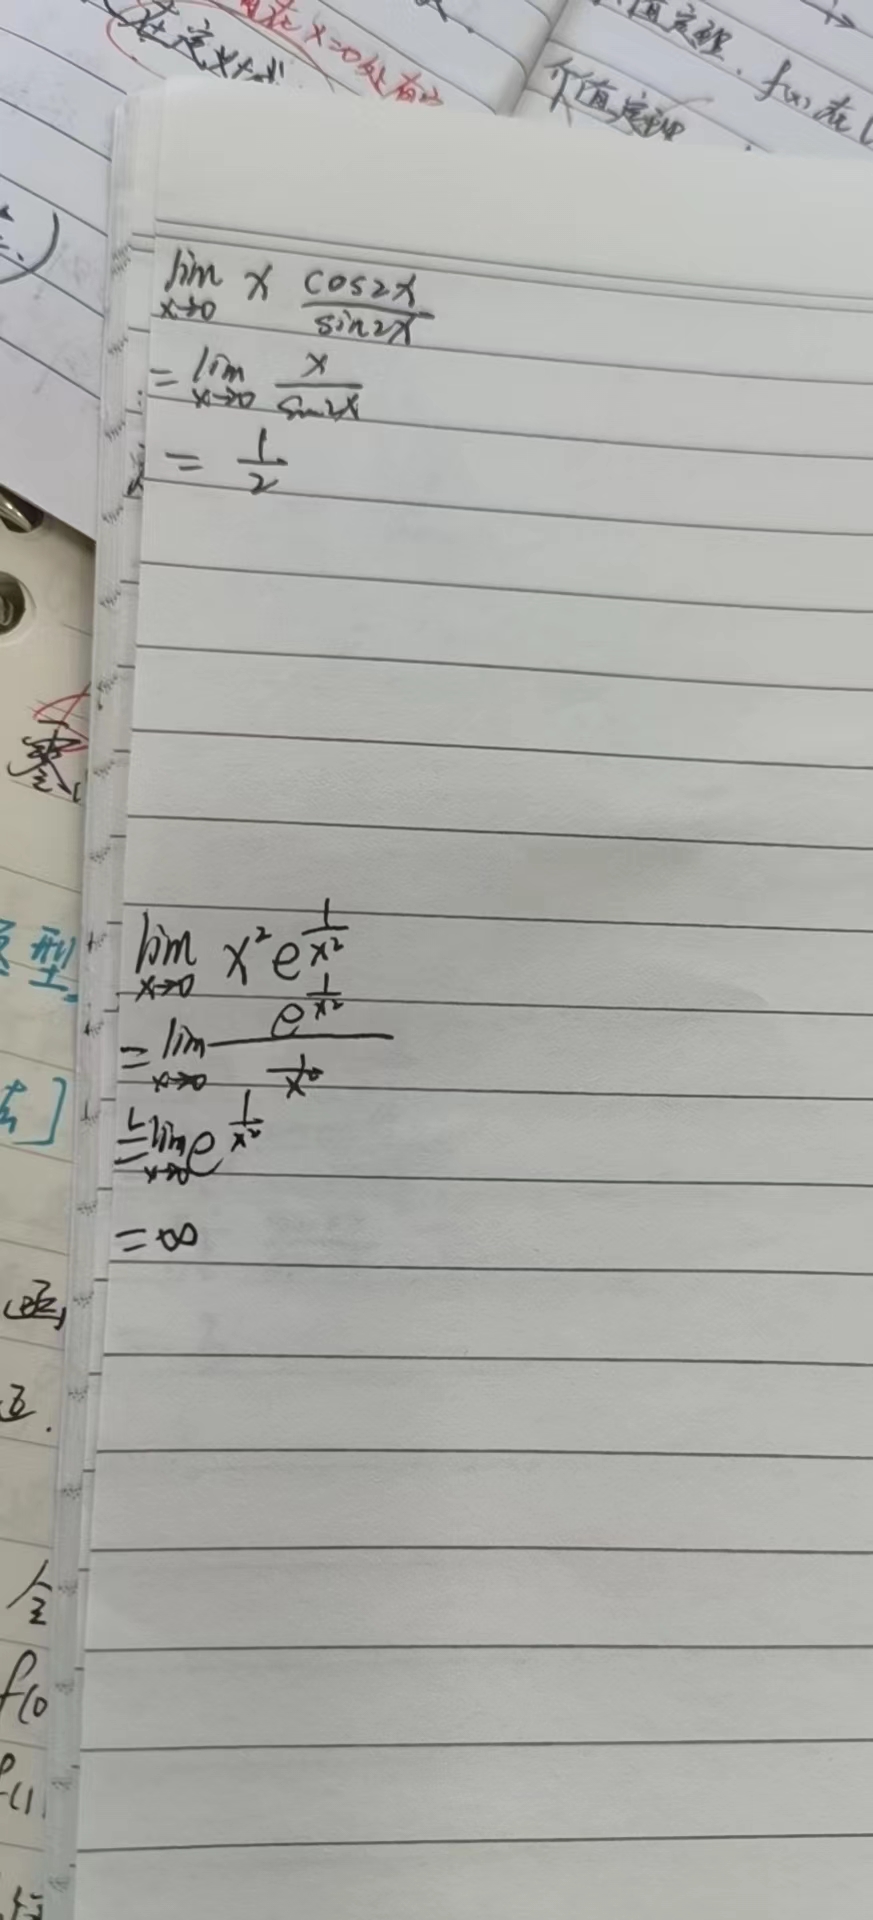 在 x=0处有
在定义
值定理.
介值定理
f(x) 在
lim x→0 x cos2x/sin2x
= lim x→0 x/sin2x
= 1/2
型
lim x→0 x² e^(1/x²)
= lim x→0 e^(1/x²) / (1/x²)
L= lim x→0 e^(1/x²)
= ∞
f(0
f(1